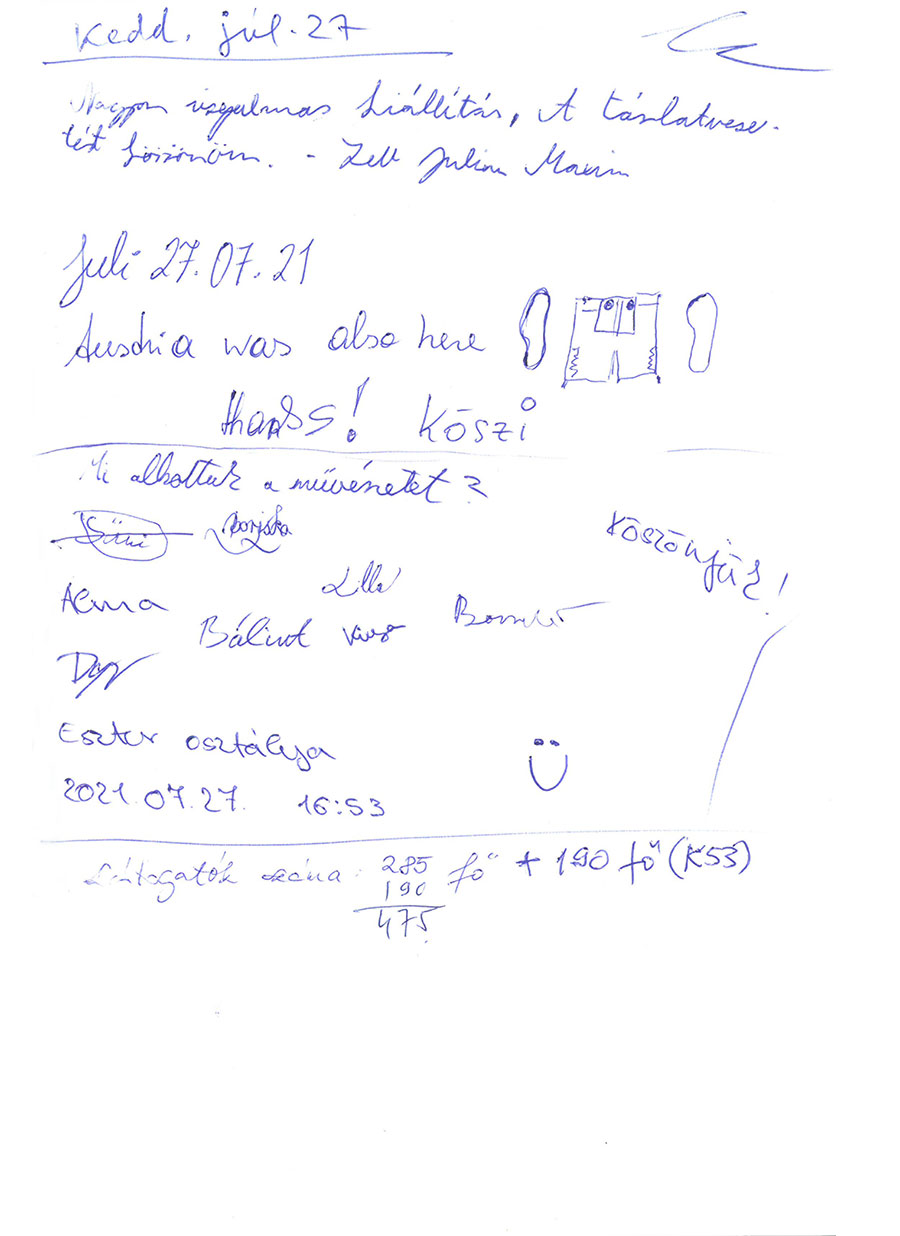 Kedd. júl. 27
Nagyon izgalmas kiállítás, A tárlatveze-
tést köszönöm. - Zell Julian
Juli 27.07.21
Austria was also here
thanks! KÖSZi
Mi alkottuk a művészetet?
Köszönjük!
Alma
Lilla
Bálint
Eszter osztálya
2021.07.27. 16:53
Látogatók száma: 285 fő + 190 fő (K53)
190
475